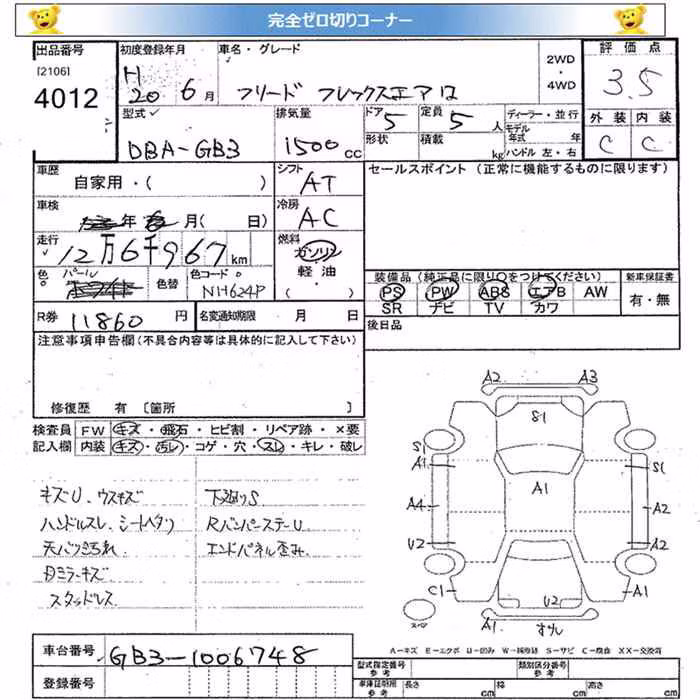 完全ゼロ切りコーナー
出品番号 初度登録年月 車名・グレード 2WD・4WD 評価点
[2106]
4012
H20 6月 フリード フレックスエアロ 3.5
型式 排気量 ドア 定員 ディーラー・並行 外装 内装
DBA-GB3 1500cc 5 5人 モデル年式 年 C C
形状 積載 kg ハンドル 左・右
車歴 自家用・( ) シフト AT セールスポイント (正常に機能するものに限ります)
車検 年 月( 日) 冷房 AC
走行 12万6千967km 燃料 ガソリン 軽油 ( )
色 パール 色替 色コード NH624P
装備品 (純正品に限り○をつけてください) 新車保証書
PS PW ABS エアB AW 有・無
SR ナビ TV カワ
R券 11860円 名変通知期限 月 日 後日品
注意事項申告欄(不具合内容等は具体的に記入して下さい)
修復歴 有 [箇所 ]
検査員 FW キズ・飛石・ヒビ割・リペア跡・×要
記入欄 内装 キズ・汚レ・コゲ・穴・スレ・キレ・破レ
キズU、ウスキズ 下廻りS
ハンドルスレ、シートヘタリ RバンパーステーU
天バリ汚れ エンドパネル歪み
Dミラーキズ
スタッドレス
A2 A3
S1
S1 A1 A1 S1
A4 A2
U2 A2
C1 U2 A1
A1
スペア
A-キズ E-エクボ U-凹み W-補修跡 S-サビ C-腐食 XX-交換済
車台番号 GB3-1006748
登録番号
型式指定番号 参考 類別区分番号 参考
車庫証明用 参考 長さ cm 幅 cm 高さ cm